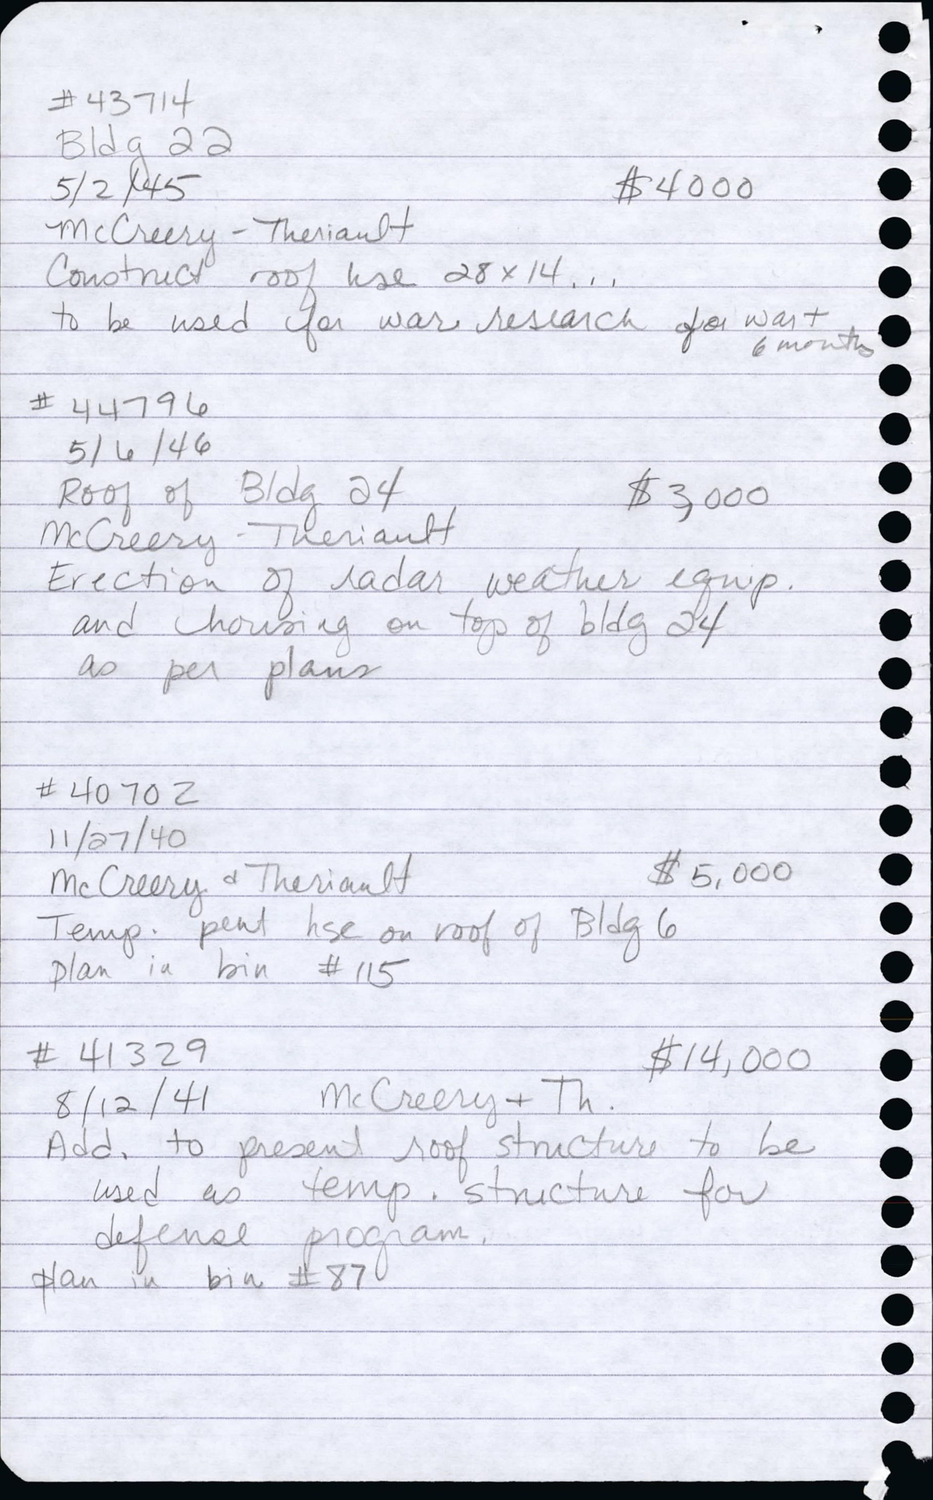 #43714
Bldg 22
5/2/45 $4000
McCreery - Theriault
Construct roof hse 28x14...
to be used for war research for war +
6 months
# 44796
5/6/46
Roof of Bldg 24 $3,000
McCreery - Theriault
Erection of radar weather equip.
and housing on top of bldg 24
as per plans
# 40702
11/27/40
McCreery & Theriault $5,000
Temp. pent hse on roof of Bldg 6
plan in bin #115
# 41329 $14,000
8/12/41 McCreery + Th.
Add. to present roof structure to be
used as temp. structure for
defense program.
plan in bin #87